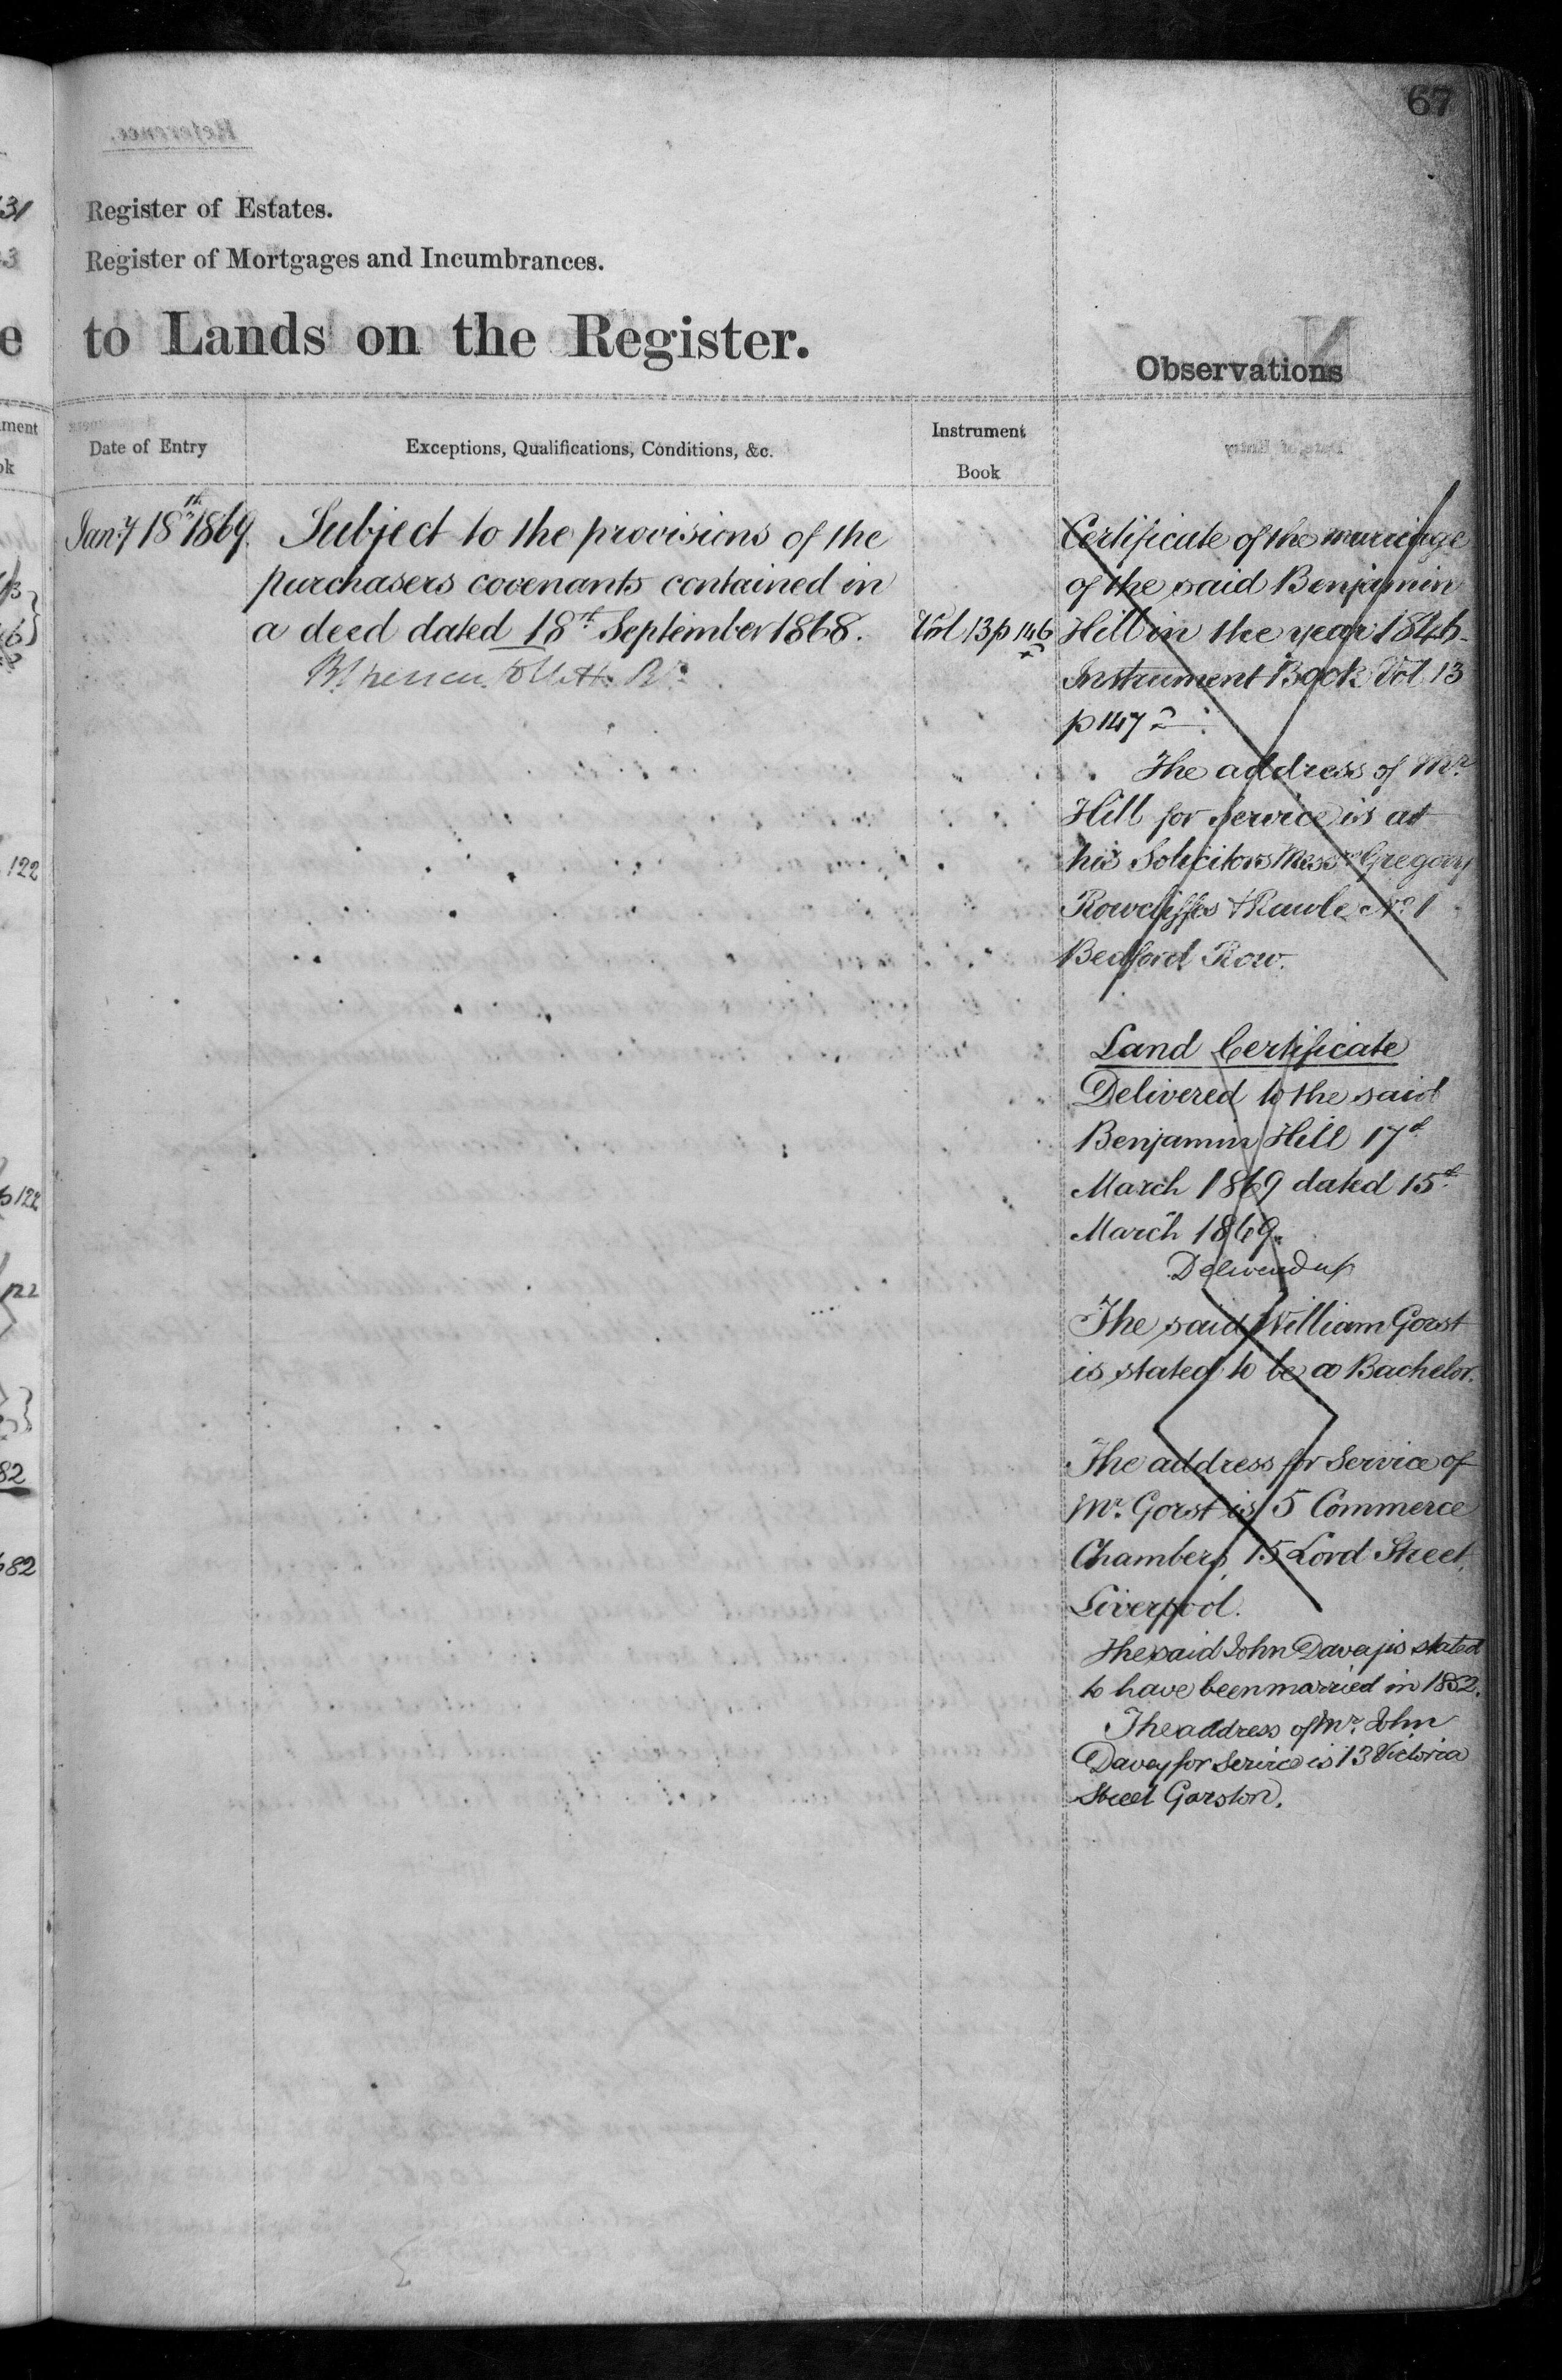 67
Register of Estates.
Register of Mortgages and Incumbrances.
to Lands on the Register.
Observations
Date of Entry
Exceptions, Qualifications, Conditions, &c.
Instrument
Book
Jany 18th 1869. Subject to the provisions of the
purchasers covenants contained in
a deed dated 18th September 1868. Vol 13 p 146
Certificate of the marriage
of the said Benjamin
Hill in the year 1846.
Instrument Book Vol 13
p 147
The address of Mr
Hill for Service is at
his Solicitors Messrs Gregory
Rowcliffes & Rawle No 1
Bedford Row.
Land Certificate
Delivered to the said
Benjamin Hill 17th
March 1869 dated 15th
March 1869.
Delivered up
The said William Gorst
is stated to be a Bachelor.
The address for Service of
Mr. Gorst is 5 Commerce
Chambers, 15 Lord Street,
Liverpool.
The said John Davey is stated
to have been married in 1852.
The address of Mr. John
Davey for Service is 13 Victoria
Street Garston.
31
3
e
ment
ok
122
p 122
122
82
82